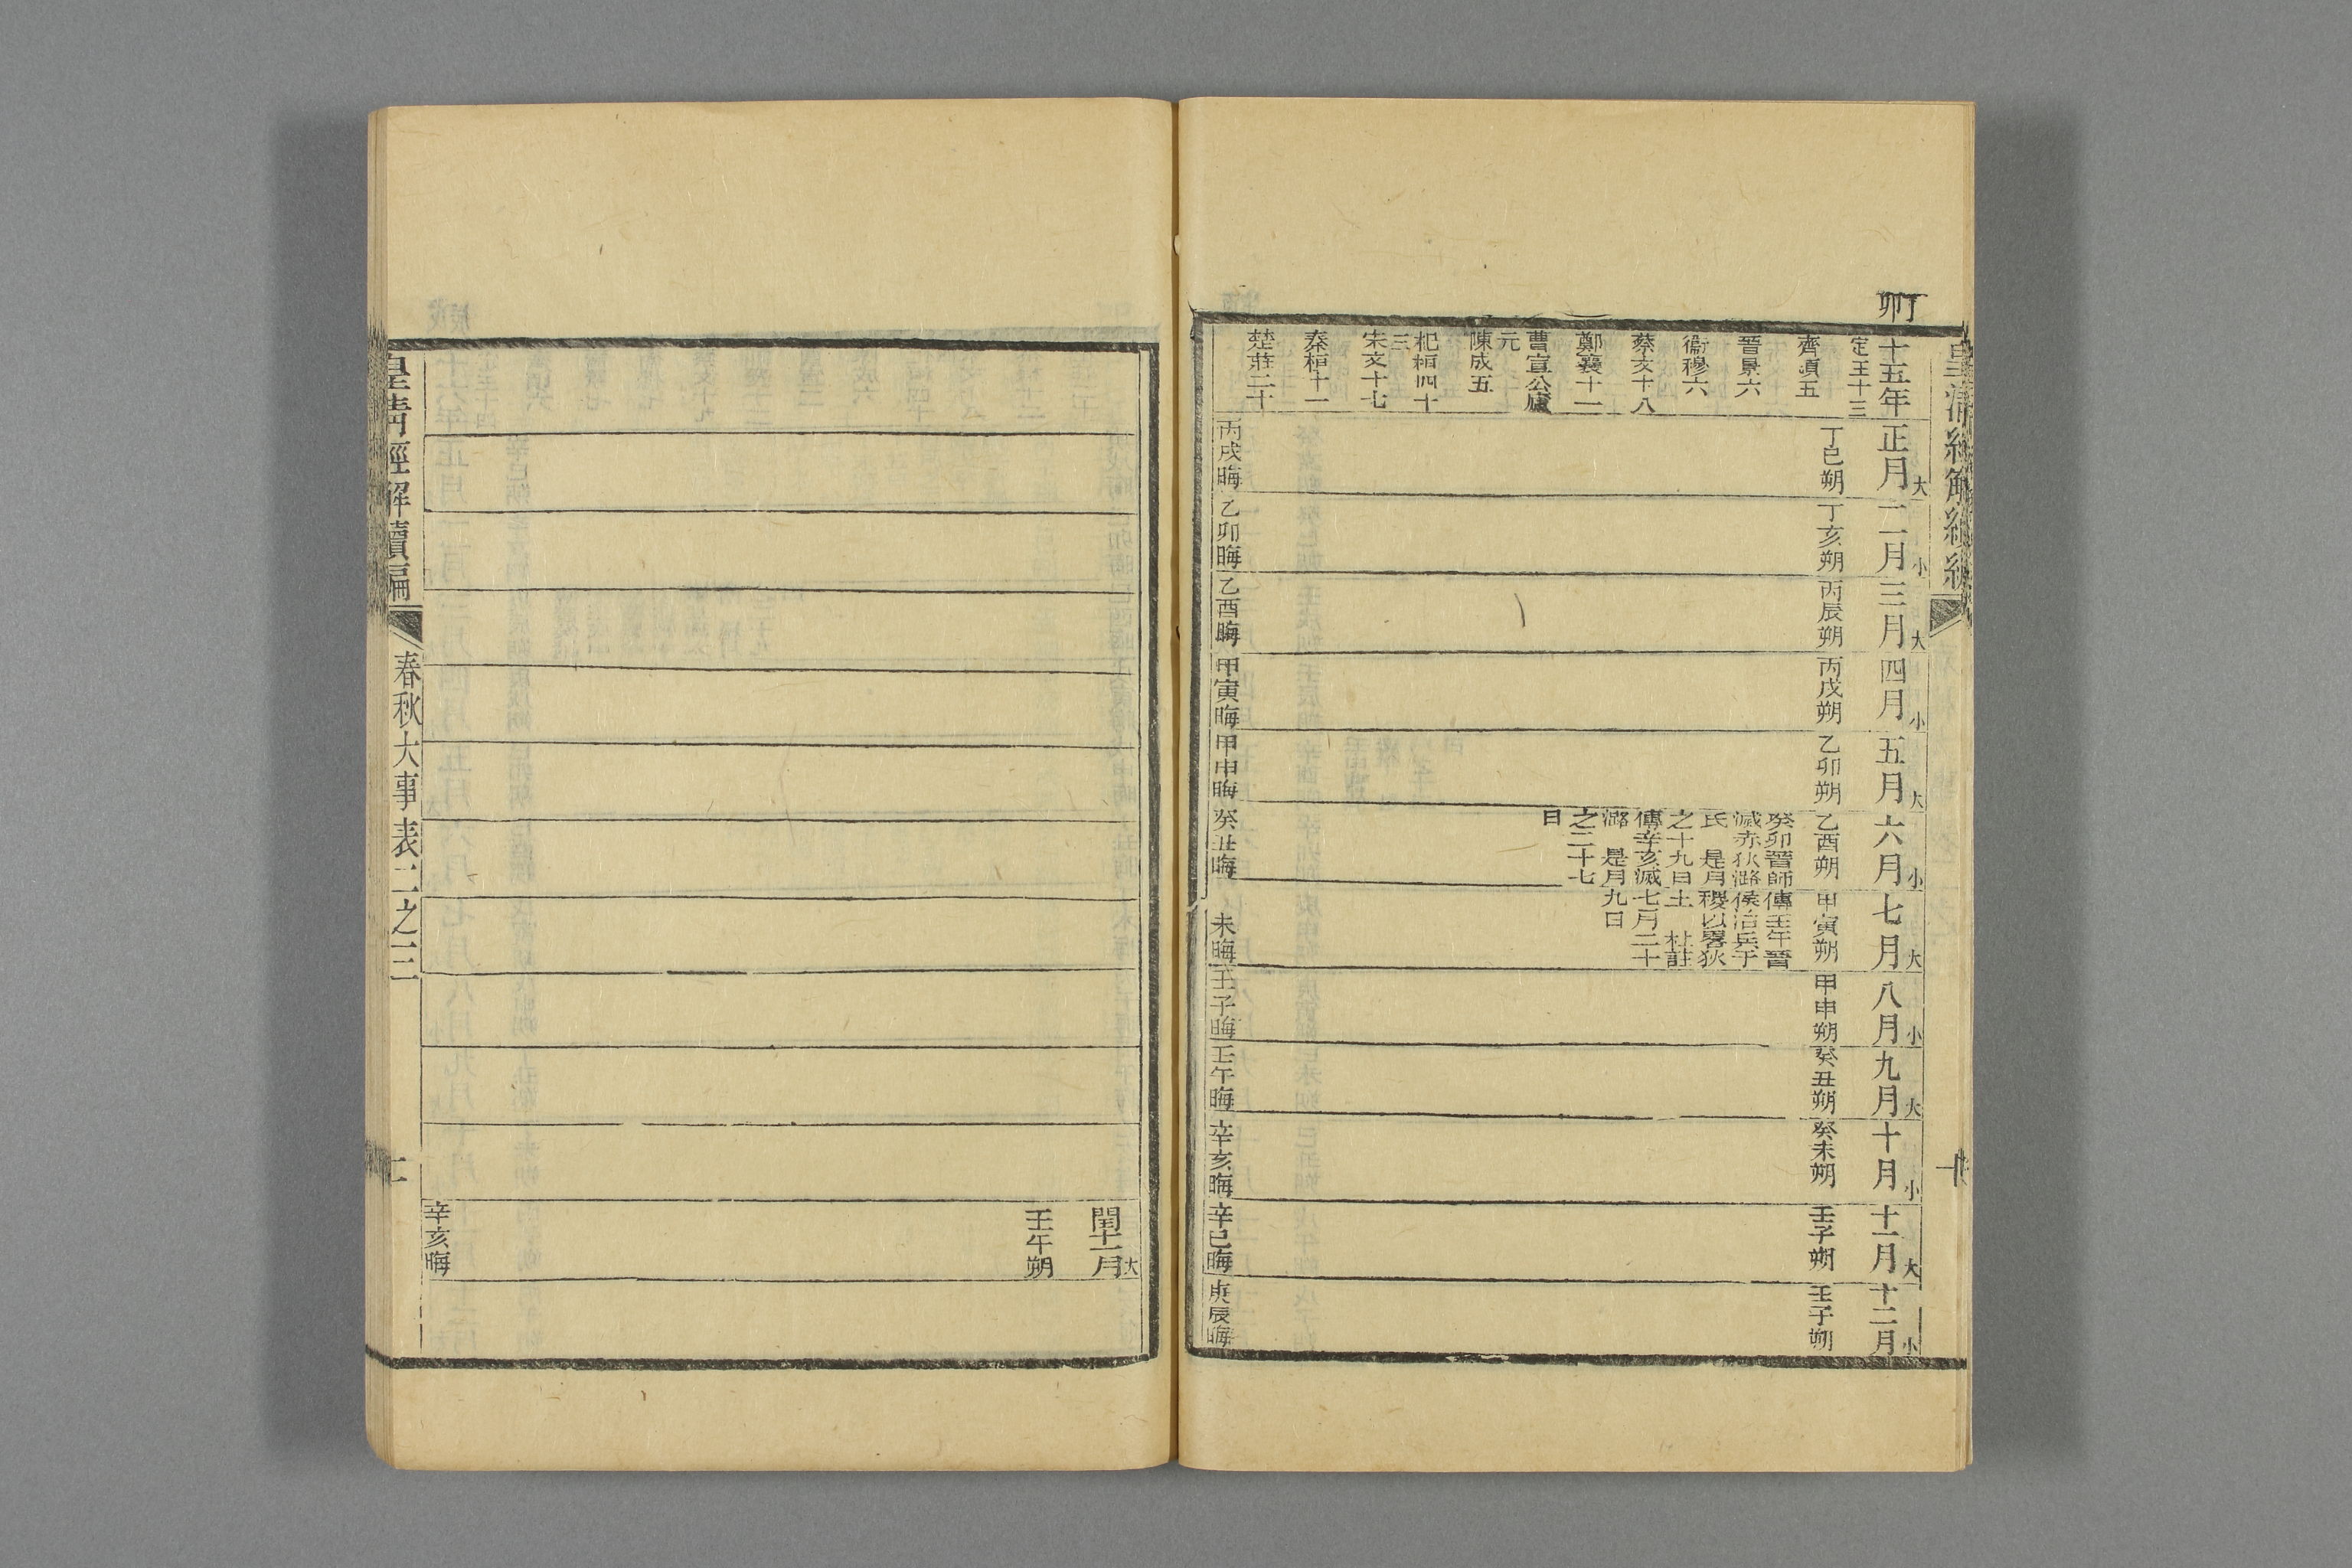 丁卯
十五年
定王十三
齊頃五
晉景六
衞穆六
蔡文十八
鄭襄十一
曹宣公廬
元
陳成五
杞桓四十
三
宋文十七
秦桓十一
楚莊二十
正月大
丁巳朔
丙戌晦
二月小
丁亥朔
乙卯晦
三月大
丙辰朔
乙酉晦
四月小
丙戌朔
甲寅晦
五月大
乙卯朔
甲申晦
六月小
乙酉朔
癸卯晉師
滅赤狄潞
氏 是月
之十九日
傳辛亥滅
潞 是月
之二十七
日
癸丑晦
七月大
甲寅朔
傳壬午晉
侯治兵于
稷以畧狄
土 杜註
七月二十
九日
未晦
八月小
甲申朔
壬子晦
九月大
癸丑朔
壬午晦
十月小
癸未朔
辛亥晦
十一月大
壬子朔
辛巳晦
十二月小
壬子朔
庚辰晦
閏十一月大
壬午朔
辛亥晦
皇清經解續編
春秋大事表二之三